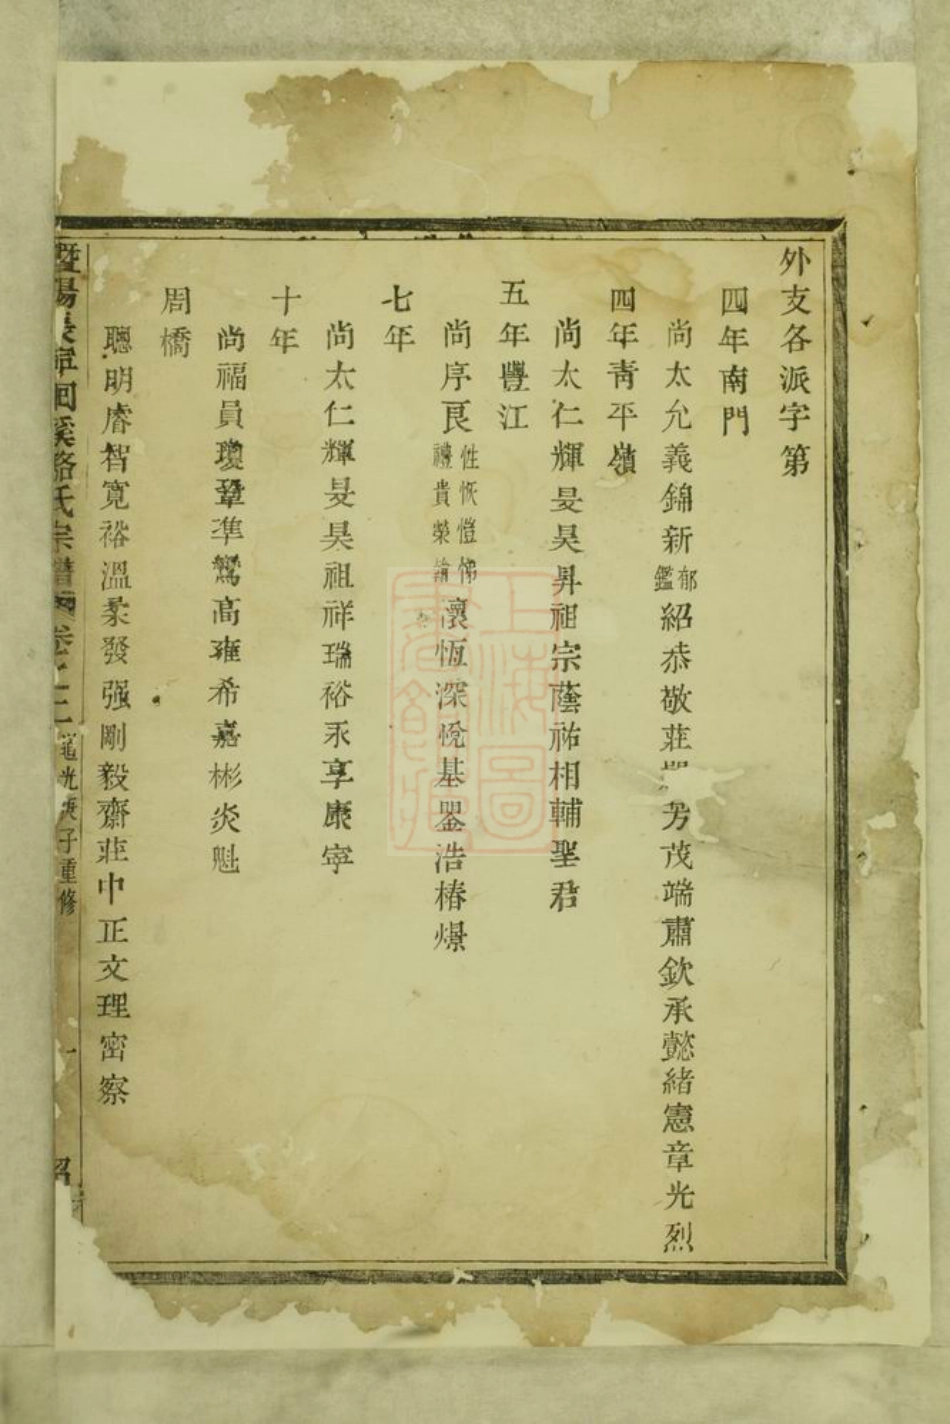 外支各派字第
四年南門
尚太允義錦新郁鑑紹恭敬莊芳茂端肅欽承懿緒憲章光烈
四年青平嶺
尚太仁輝旻昊昇祖宗蔭祐相輔聖君
五年豐江
尚序良性恢愷悌禮貴榮懷恆深悅基鋆浩椿煜
七年
尚太仁輝旻昊祖祥瑞裕永享康寧
十年
尚福員瓊鞏準鸞高雍希嘉彬炎魁
周橋
聰明睿智寬裕溫柔發强剛毅齋莊中正文理密察
暨陽長寧回溪駱氏宗譜 卷之二 光庚子重修
上海圖書館藏